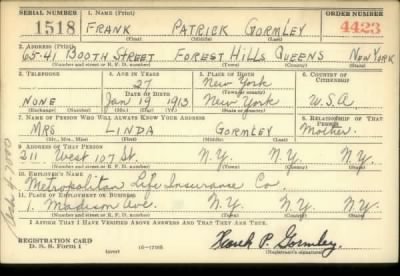 SERIAL NUMBER 1. NAME (Print) ORDER NUMBER
1518 FRANK PATRICK GORMLEY 4423
(First) (Middle) (Last)
2. ADDRESS (Print)
65-41 BOOTH STREET FOREST HILLS QUEENS NEW YORK
(Number and street or R. F. D. number) (Town) (County) (State)
3. TELEPHONE 4. AGE IN YEARS 5. PLACE OF BIRTH 6. COUNTRY OF CITIZENSHIP
27 New York
DATE OF BIRTH (Town or county)
NONE Jan 19 1913 New York U.S.A.
(Exchange) (Number) (Mo.) (Day) (Yr.) (State or country)
7. NAME OF PERSON WHO WILL ALWAYS KNOW YOUR ADDRESS 8. RELATIONSHIP OF THAT PERSON
Mrs. LINDA GORMLEY Mother.
(Mr., Mrs., Miss) (First) (Middle) (Last)
9. ADDRESS OF THAT PERSON
211 West 107 St. N.Y. N.Y. N.Y.
(Number and street or R. F. D. number) (Town) (County) (State)
10. EMPLOYER'S NAME
Metropolitan Life Insurance Co.
11. PLACE OF EMPLOYMENT OR BUSINESS
1. Madison Ave. N.Y. N.Y. N.Y.
(Number and street or R. F. D. number) (Town) (County) (State)
I AFFIRM THAT I HAVE VERIFIED ABOVE ANSWERS AND THAT THEY ARE TRUE.
REGISTRATION CARD
D. S. S. FORM 1 (over) 16-17105 Frank P. Gormley
(Registrant's signature)